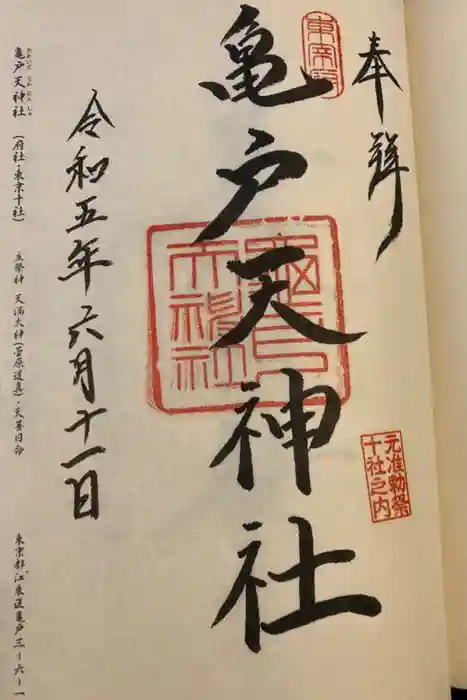 奉拝
東宰府
亀戸天神社
亀戸天神社
元准勅祭
十社之内
令和五年六月十一日
亀戸天神社(府社・東京十社) 主祭神 天満大神(菅原道真)・天菩日命 東京都江東区亀戸三-六-一
かめいどてんじんしゃ